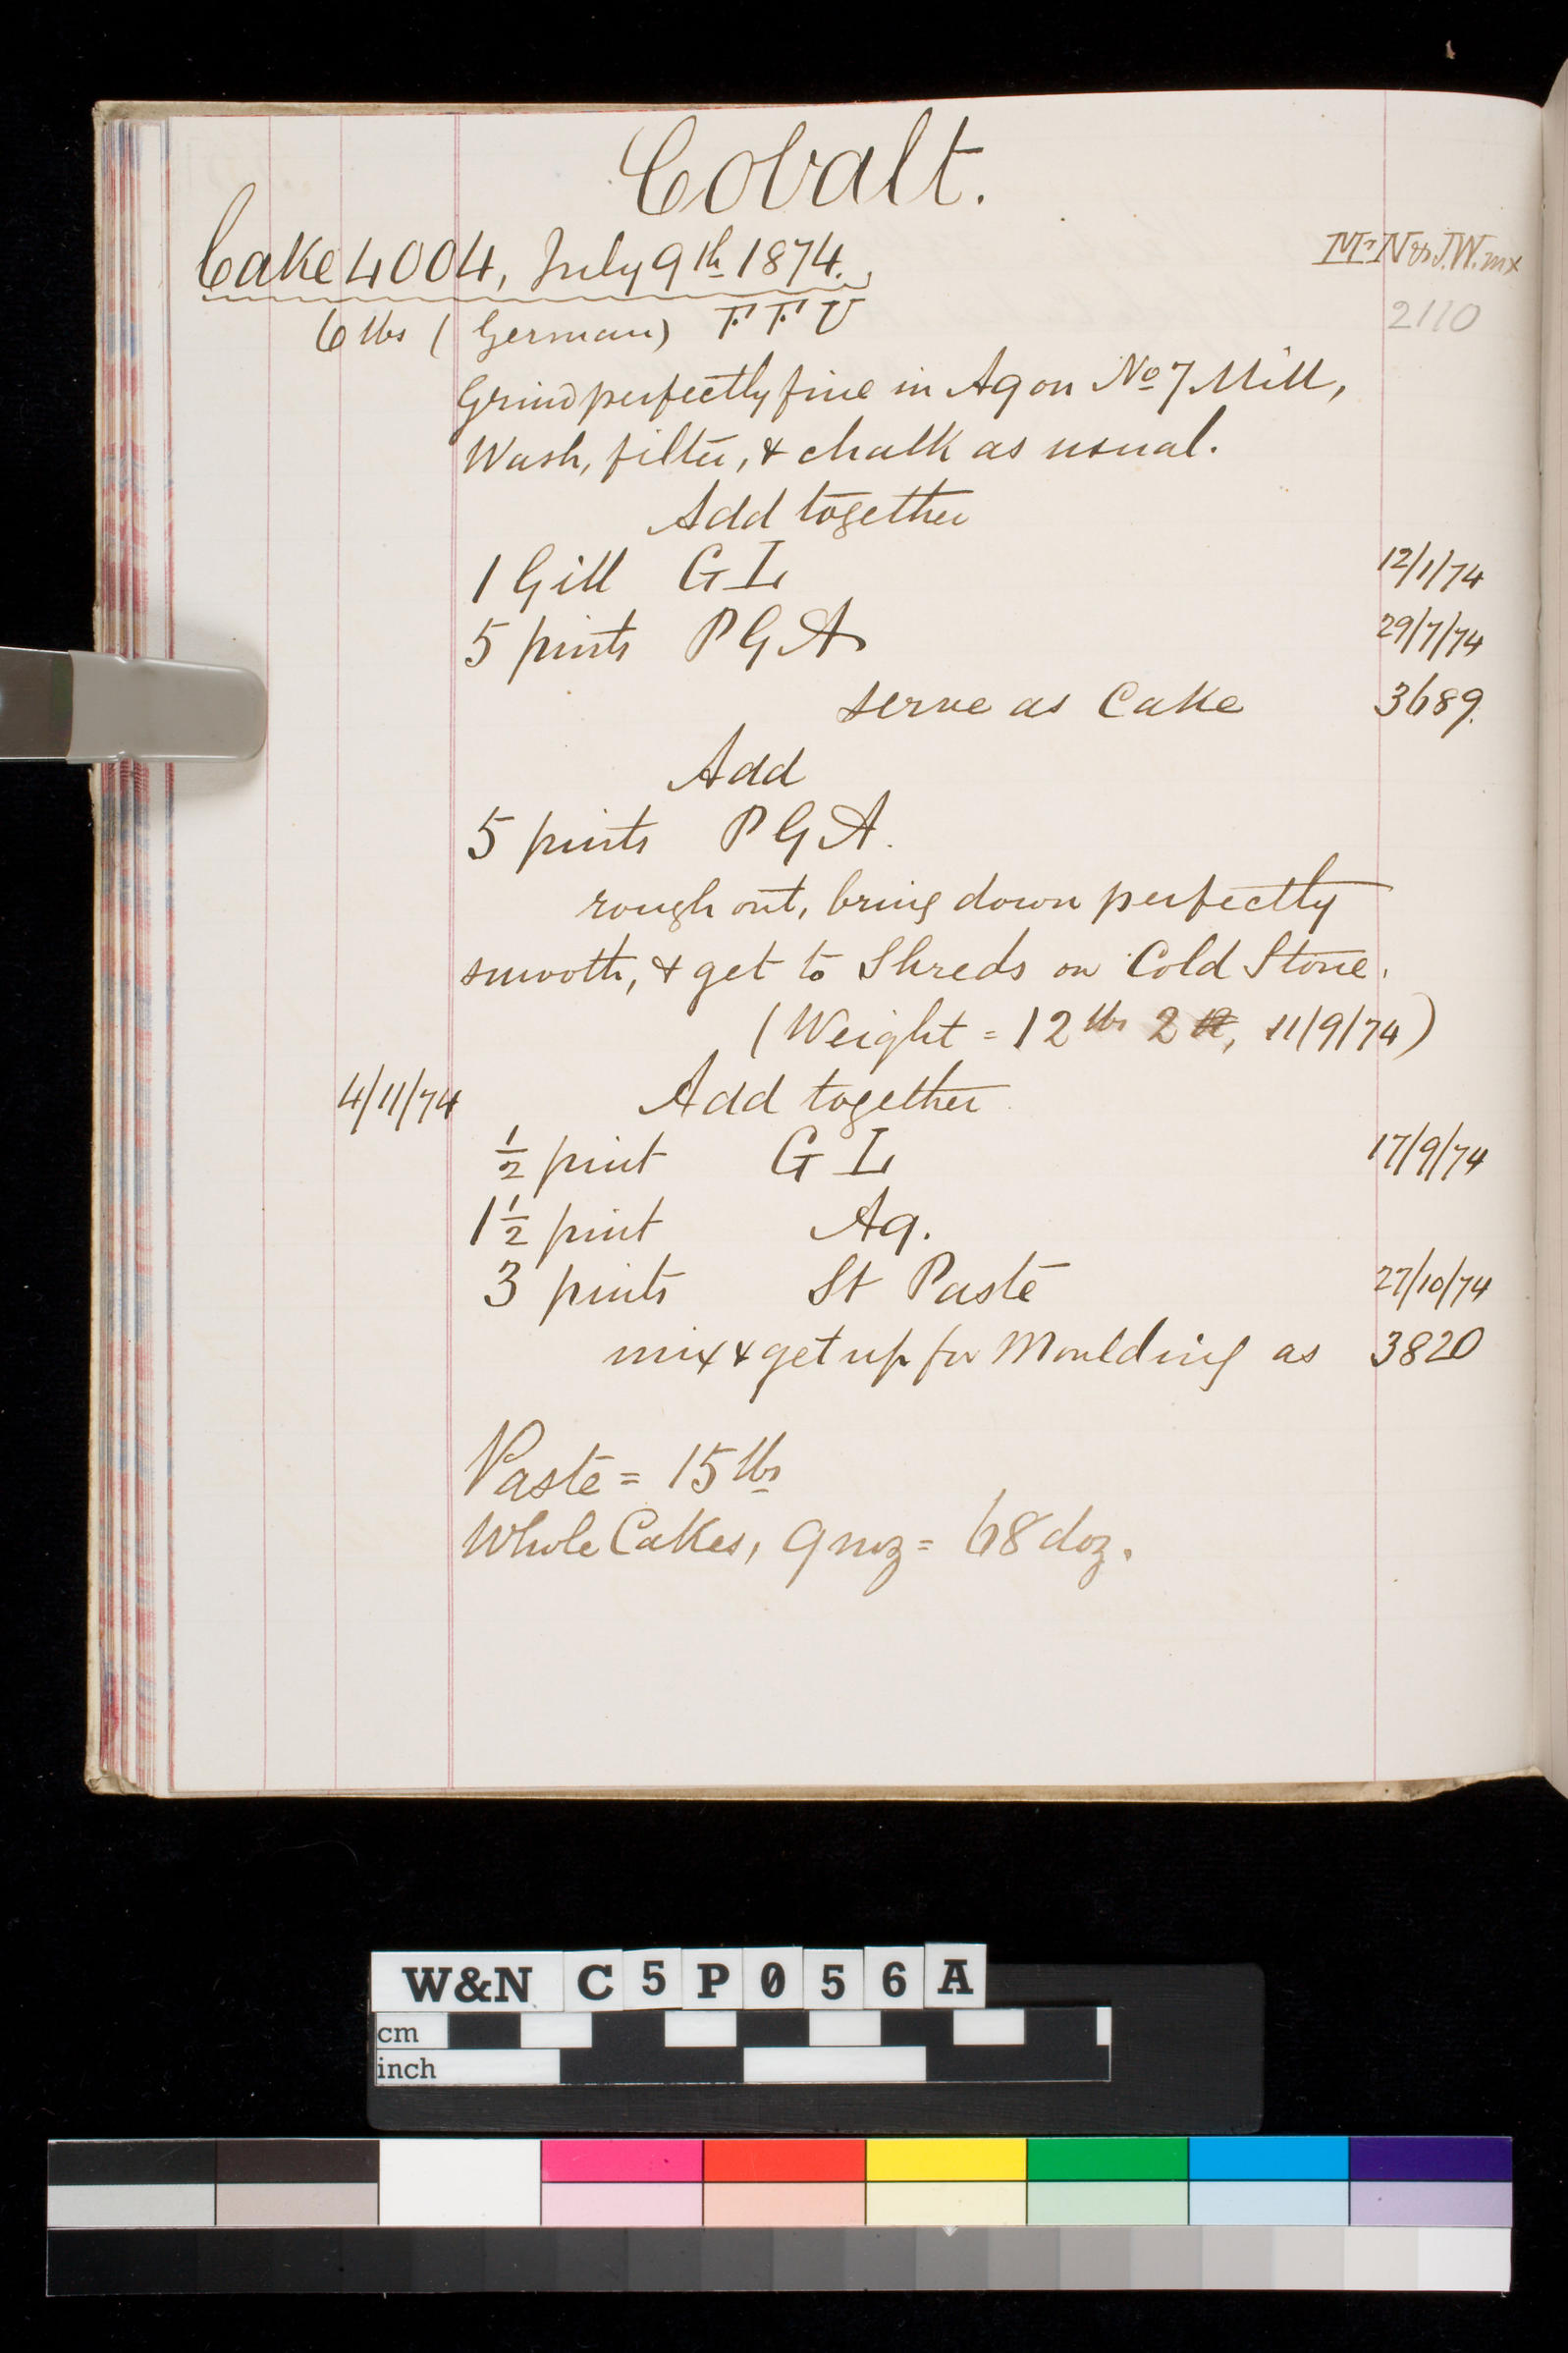 Cobalt.
Cake 4004, July 9th 1874.
Mr N vs J.W. mx
6 lbs (German) F.F.U
2110
Grind perfectly fine in Aq on No 7 Mill,
Wash, filter, & chalk as usual.
Add together
1 Gill GL 12/1/74
5 pints PGA 29/7/74
serve as Cake 3689.
Add
5 pints PGA.
rough out, bring down perfectly
smooth, & get to Shreds on Cold Stone.
(Weight = 12 lbs 2, 11/9/74)
4/11/74 Add together
½ pint GL 17/9/74
1½ pint Aq.
3 pints St Paste 27/10/74
mix & get up for Moulding as 3820
Paste = 15 lbs
Whole Cakes, 9 = 68 doz.
W&N C5P056A
cm
inch